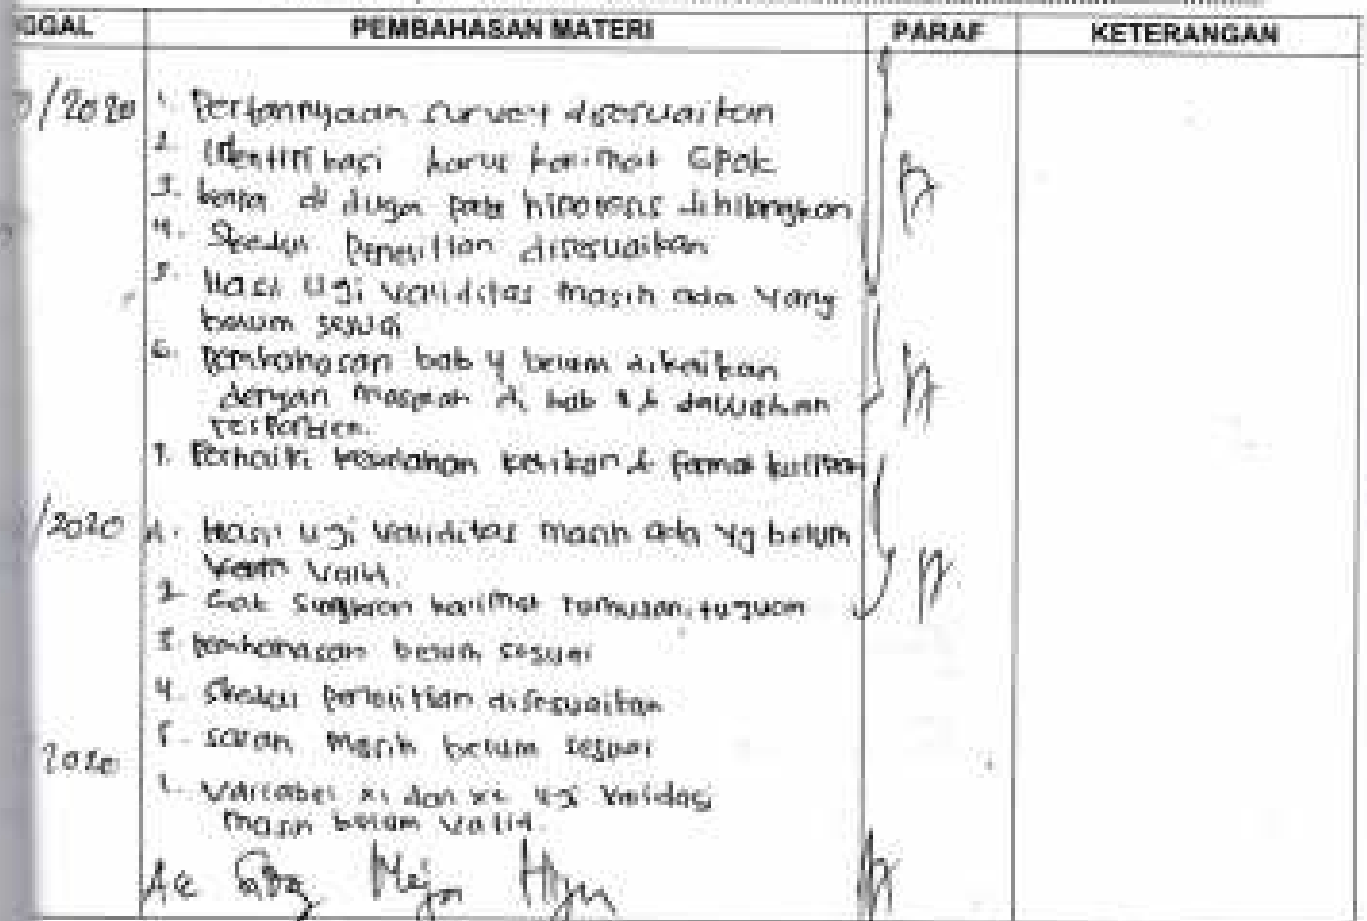 GGAL PEMBAHASAN MATERI PARAF KETERANGAN
/2020 1. Pertannyaan survey disesuaikan
2. Identifikasi harus kalimat
3. kata di duga pada hipotesis dihilangkan
4. Skedul Penelitian disesuaikan
5. Hasil Uji validitas masih ada yang
belum sesuai
6. Pembahasan bab 4 belum dikaitkan
dengan masalah di bab 1 & jawaban
responden.
7. Perbaiki kesalahan ketikan & format
/2020 1. Hasil uji validitas masih ada yg belum
valid.
2. kalimat rumusan, tujuan
3. Pembahasan belum sesuai
4. Skedul penelitian disesuaikan
5. saran masih belum sesuai
2020 1. Variabel x1 dan x2 uji validasi
masih belum valid.